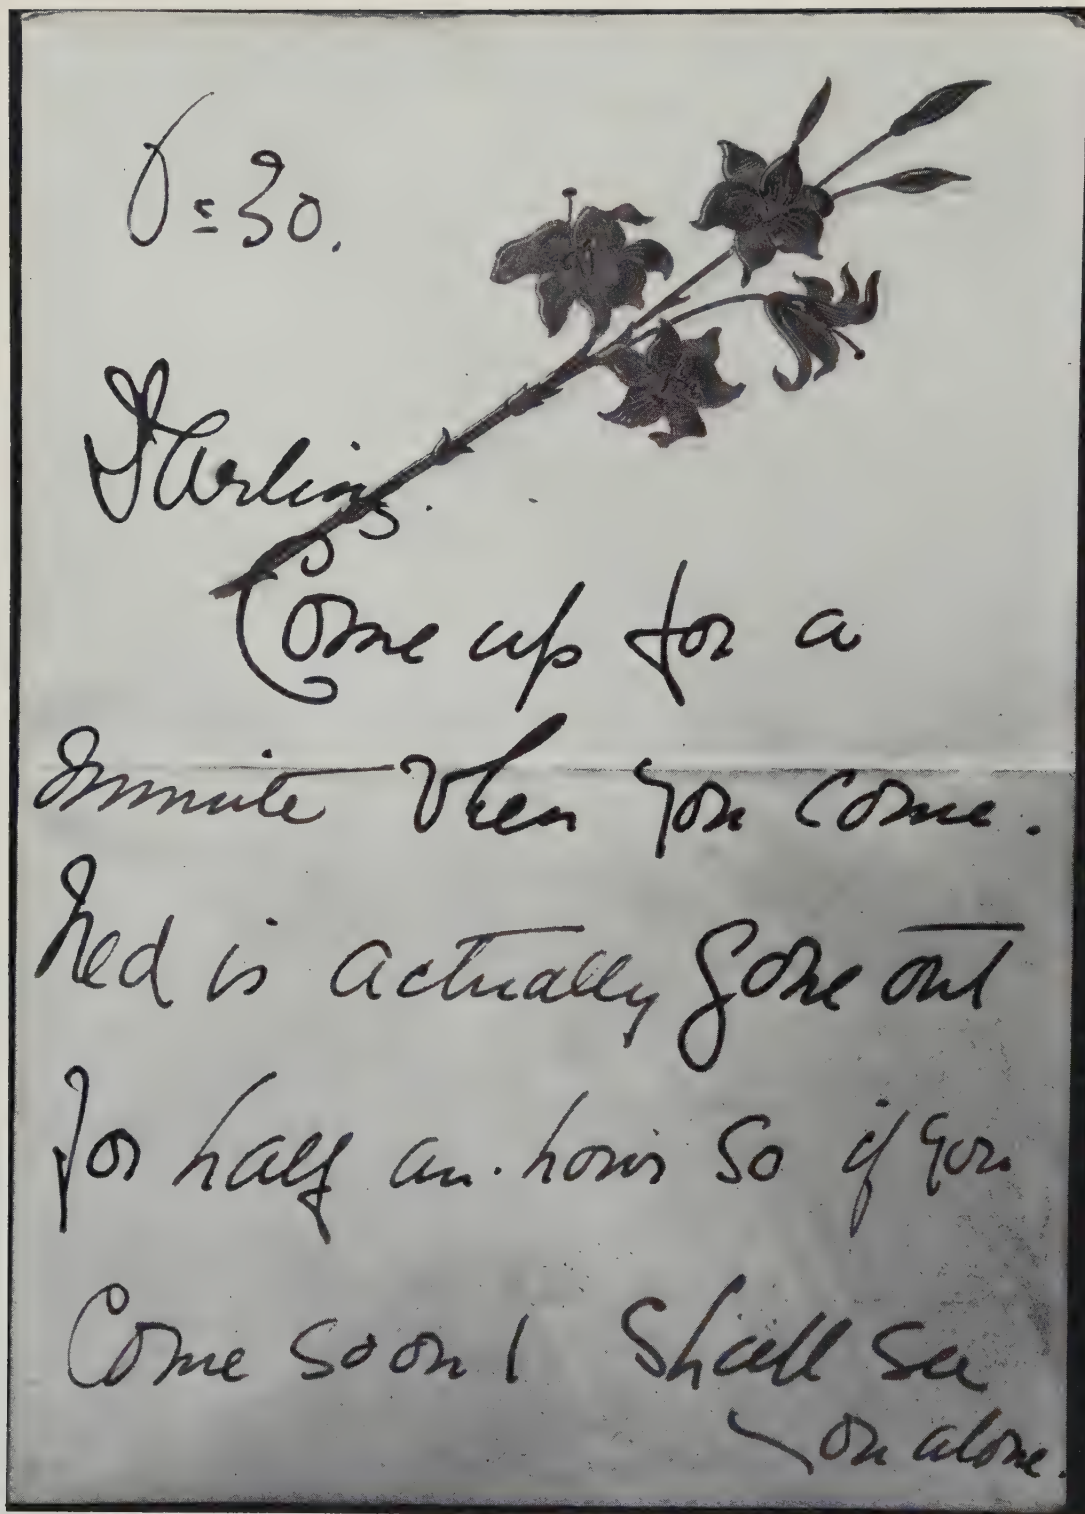 6=30.
Darling.
Come up for a
minute when you come.
Ned is actually gone out
for half an hour so if you
Come soon I shall see
you alone.